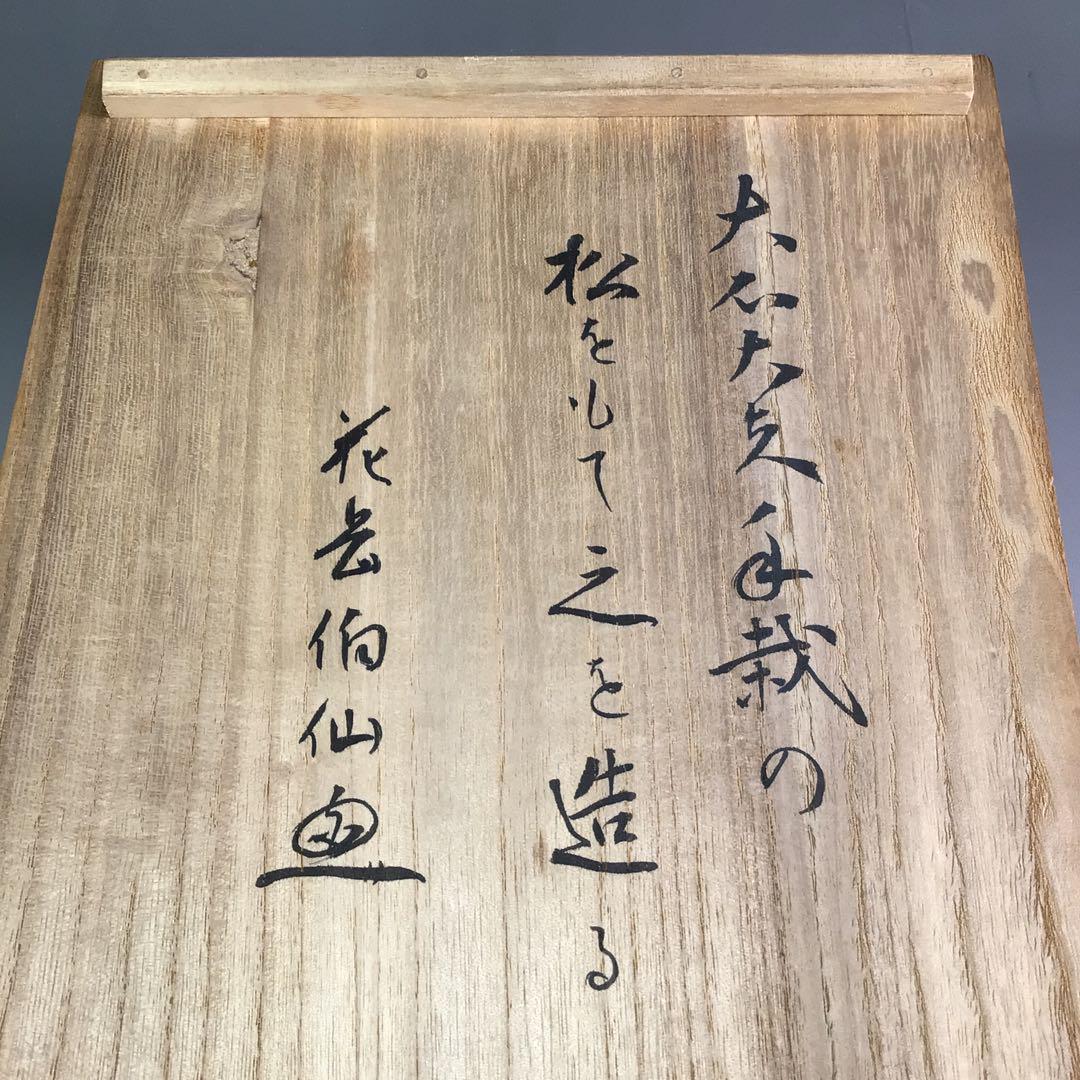 大石大夫手栽の
松をもて之を造る
花岳伯仙